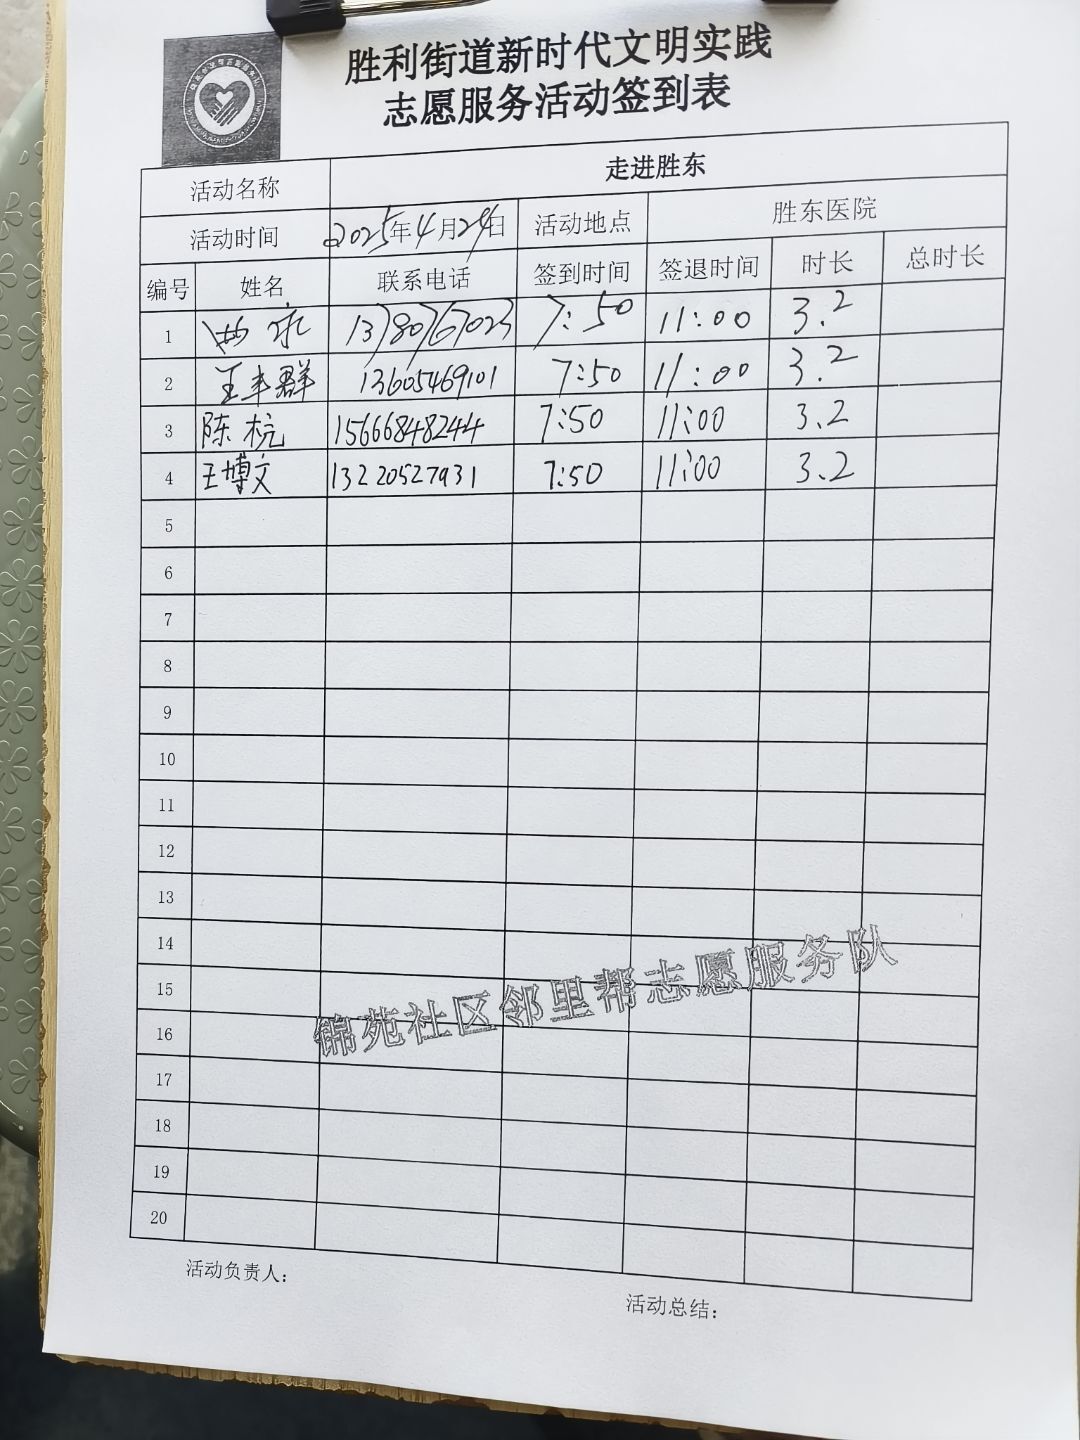 胜利街道新时代文明实践
志愿服务活动签到表
活动名称 走进胜东
活动时间 2025年4月24日 活动地点 胜东医院
编号 姓名 联系电话 签到时间 签退时间 时长 总时长
1 13780767023 7:50 11:00 3.2
2 王丰群 13605469101 7:50 11:00 3.2
3 陈杭 15666848244 7:50 11:00 3.2
4 王博文 13220527931 7:50 11:00 3.2
5
6
7
8
9
10
11
12
13
14
15
16
17
18
19
20
锦苑社区邻里帮志愿服务队
活动负责人:
活动总结: